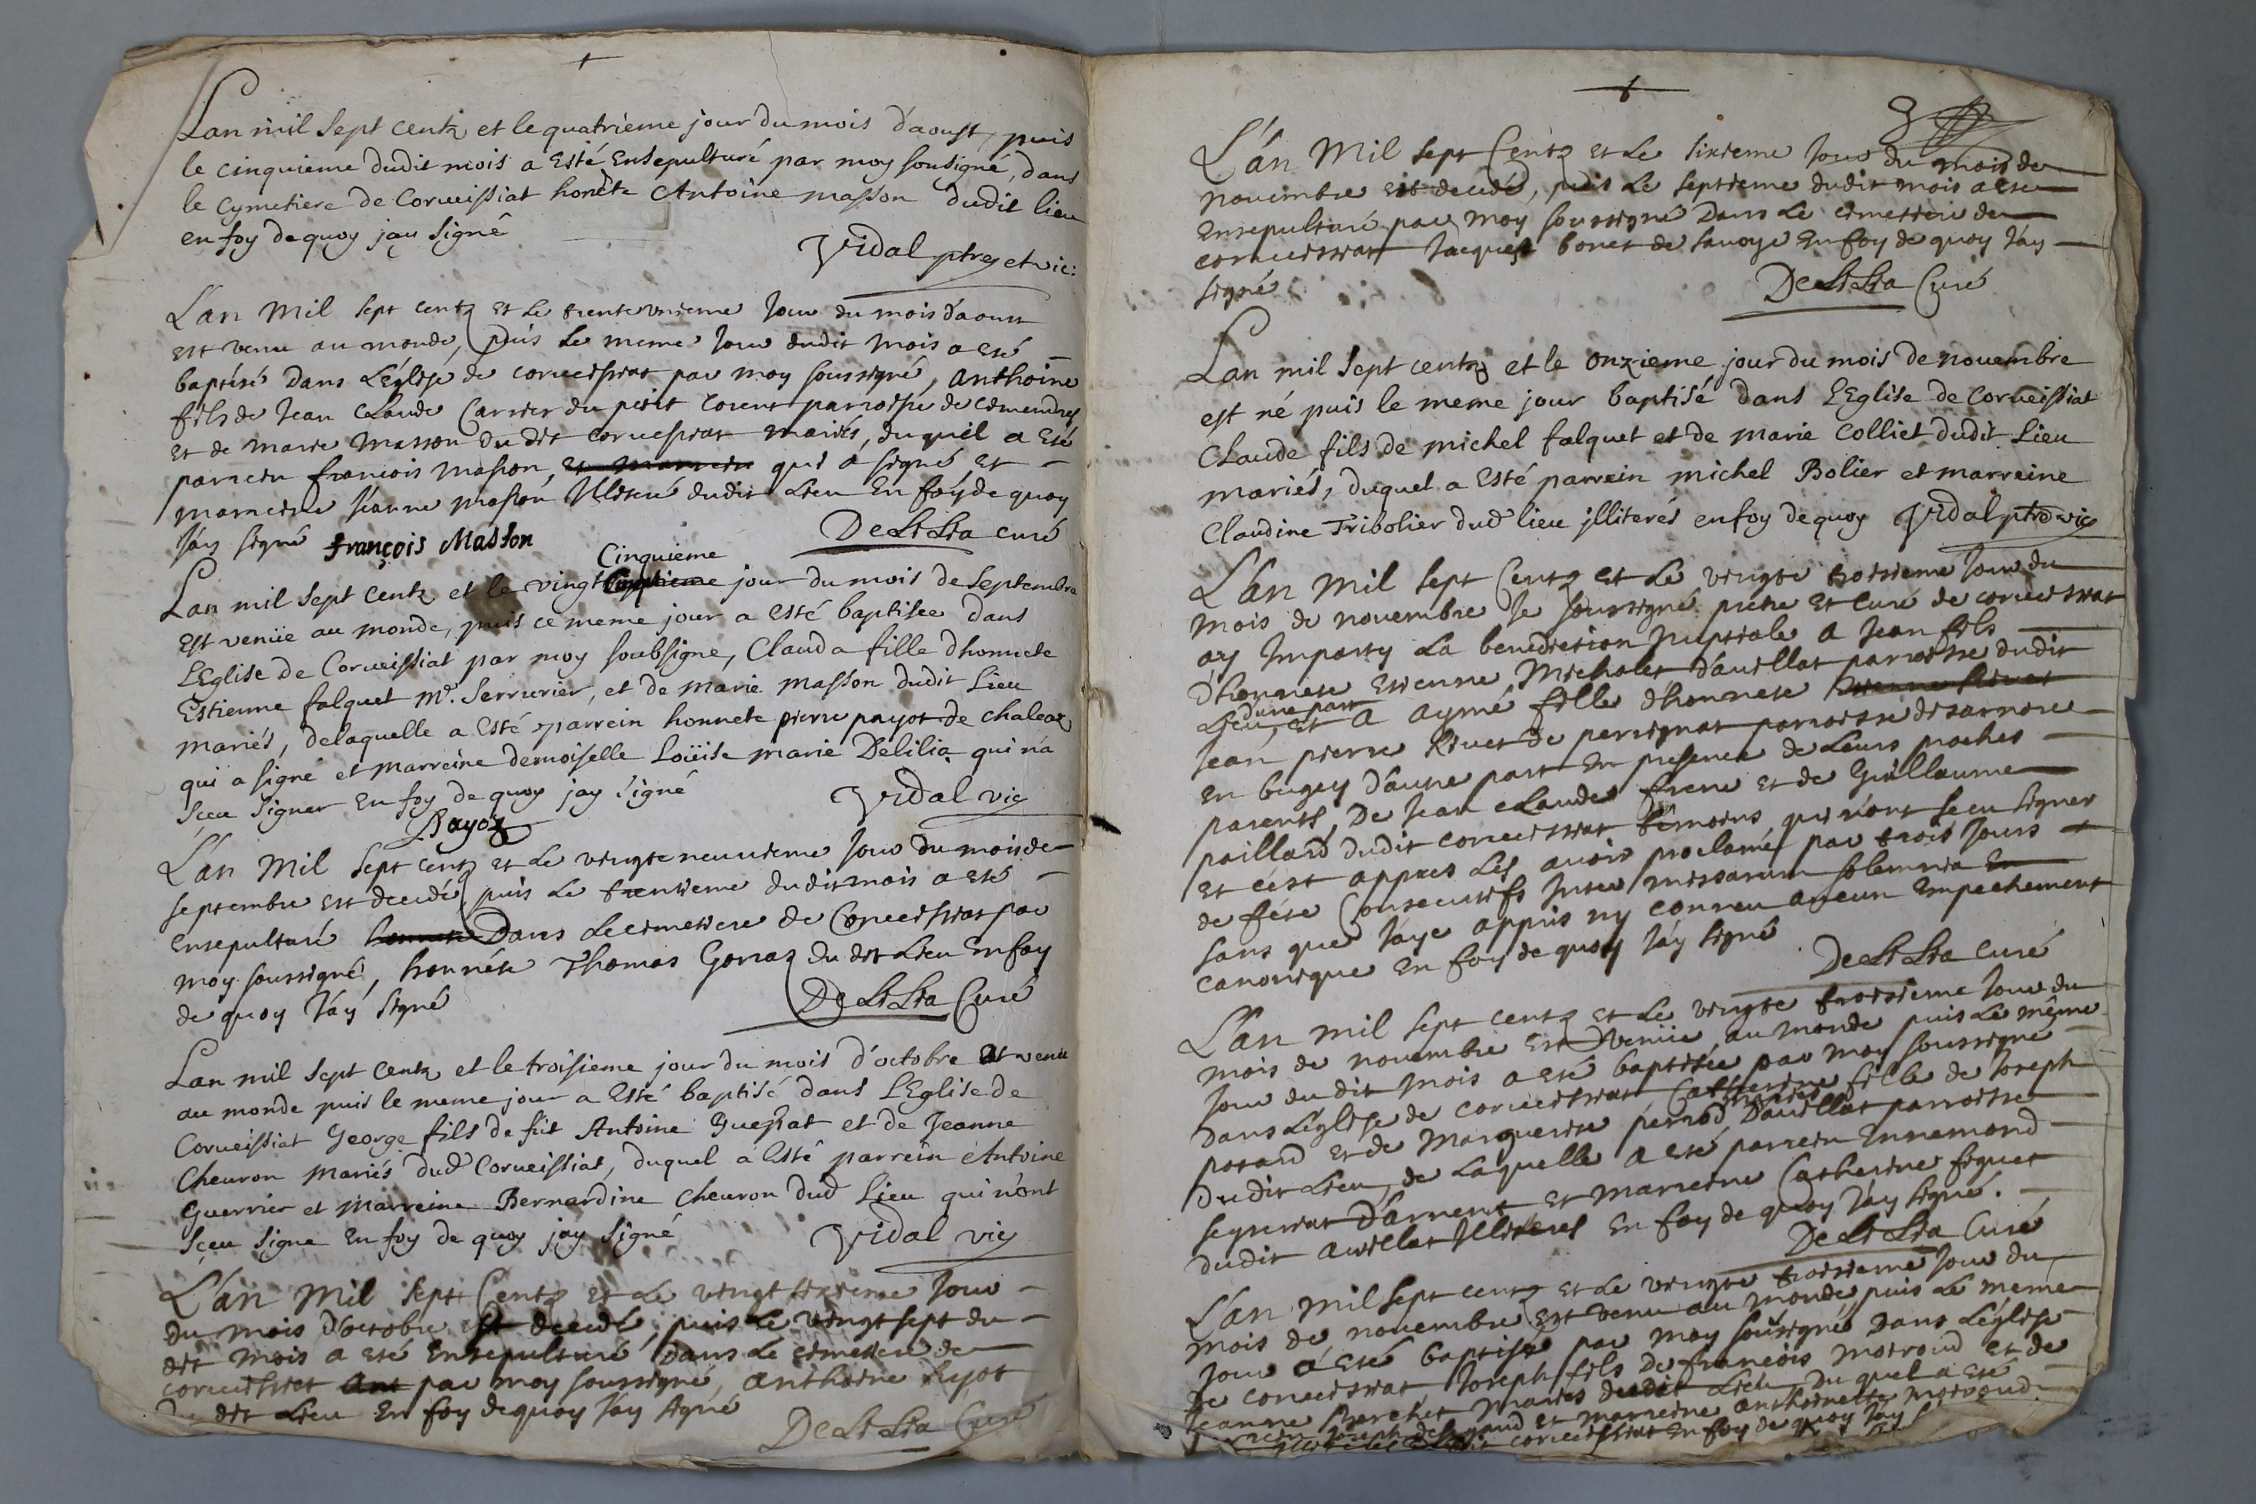 Lan mil sept centz et le quatrieme jour du mois d'aoust, puis
le cinquieme dudit mois a esté Ensepulturé par moy sousigné, dans
le cymetiere de Corveissiat honete Antoine masson dudit lieu
en foy de quoy jay signé
Vidal ptre et vic:
L'an Mil sept centz et le trente unieme Jour du mois d'aoust
est venu au monde, puis le meme Jour dudit mois a esté
baptisé dans L'église de corveissiat par moy soussigné, anthoine
fils de Jean claude Carrier du petit Corent parroisse de
et de marie masson du dit corveissiat mariés, duquil a esté
parrein francois masson, et marreine qui a signé et
marreine Jeanne masson Illiteré dudit Lieu En foy de quoy
Jay signé françois Masson
DeLiLia curé
Cinquieme
Lan mil sept centz et le vingt jour du mois de septembre
est venüe au monde, puis ce meme jour a esté baptisee dans
LEglise de Corveissiat par moy soubsigne, Clauda fille dhonnete
Estienne falquet me. Serrurier, et de marie masson dudit Lieu
mariés, delaquelle a esté parrein honnete pierre payot de chaleaz
qui a signé et marreine demoiselle Loüise marie Delilia qui n'a
sceu signer en foy de quoy jay signé
Vidal vic
Payoz
L'an Mil sept centz et le vingte neuvieme Jour du mois de
septembre est decedé puis le trentieme dudit mois a esté
ensepulturé honnete Dans le cimetiere de Corveissiat par
moy soussigné, honnéte Thomas Gonaz du dit Lieu En foy
de quoy Jáy signé
DeLiLia Curé
Lan mil sept centz et le troisieme jour du mois d'octobre est venu
au monde puis le meme jour a esté baptisé dans LEglise de
Corveissiat George fils de füt Antoine Guerrat et de Jeanne
Chevron mariés dud Corveissiat, duquel a esté parrein Antoine
Guerrier et marreine Bernardine chevron dud Lieu qui n'ont
sceu signe en foy de quoy jay signé
Vidal vic
L'an Mil sept Centz et le vingt sixieme Jour
du mois d'octobre est decedé, puis le vingt sept du
dit mois a esté ensepulturé Dans le cimetiere de
corveissiat ant par moy soussigné, anthoine
du dit Lieu En foy de quoy Jay signé
DeLiLia Curé
3
L'án Mil sept Centz et le sixieme Jour du mois de
novembre est decedé, puis le septieme dudit mois a esté
ensepulturé par moy soussigné Dans le cimetiere de
corveissiat Jacques bonet de savoye en foy de quoy Jáy
signé
DeLiLia Curé
Lan mil sept centz et le onzieme jour du mois de novembre
est né puis le meme jour baptisé dans LEglise de Corveissiat
Claude fils de michel falquet et de marie Colliet dudit Lieu
mariés, duquel a esté parrein michel Bolier et marreine
Claudine Tribolier dud lieu jlliterés en foy de quoy Vidal ptre vic
L'án mil sept Centz et le vingte troisieme Jour du
mois de novembre Je soussigné prétre et curé de corveissiat
ay Imparty la benediction Nuptiale a Jean fils
d'honnete estienne Michalet d'avillat parroisse dudit
d'une part
Lieu, et a aymé fille d'honnete
Jean pierre Rivet de perrignat parroisse de
en bugey d'aune part en presence de Leurs proches
parents, De Jean claude frere et de Guillaume
paillard dudit corveissiat témoins qui n'ont sceu signer
et c'ést appres les avoir proclamé par trois Jours
de féte Consecutifs Inter missarum solemnia
sans que Jaye appris ny conneu aucun Empechement
canonique En foy de quoy Jáy signé
DeLiLia Curé
L'an mil sept centz et le vingte troisieme Jour du
mois de novembre est venüe au monde puis le même
Jour du dit mois a esté baptisée par moy soussigné
Dans Léglise de corveissiat, Catherine fille de Joseph
mariés
potard et de Marguerite perrod D'avillat parroisse
du dit Lieu, de Laquelle a esté parrein Ennemond
d'arnent et marreine Catherine figuet
dudit avillat Illiterés en foy de quoy Jáy signé.
DeLiLia Curé
L'án mil sept centz et le vingte troisieme Jour du
mois de novembre est venu au monde, puis le meme
Jour a esté baptisé par moy soussigné Dans Léglise
de corveissiat, Joseph fils de francois moiroud et de
Jeanne mariés dudit Lieu Duquel a esté
parrein Joseph et marreine anthoinette moiroud
corveissiat en foy de quoy Jáy